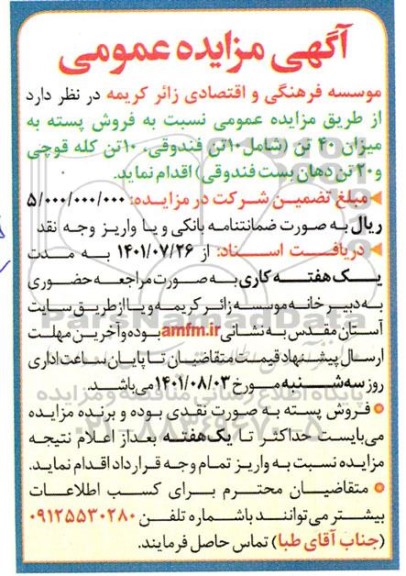 آگهی مزایده عمومی
موسسه فرهنگی و اقتصادی زائر کریمه در نظر دارد
از طریق مزایده عمومی نسبت به فروش پسته به
میزان ۴۰ تن (شامل ۱۰تن فندوقی، ۱۰تن کله قوچی
و ۲۰ تن دهان بست فندوقی) اقدام نماید.
مبلغ تضمین شرکت در مزایده: ۵/۰۰۰/۰۰۰/۰۰۰
ریال به صورت ضمانتنامه بانکی و یا واریز وجه نقد
دریافت اسناد: از ۱۴۰۱/۰۷/۲۶ به مدت
یک هفته کاری به صورت مراجعه حضوری
به دبیرخانه موسسه زائر کریمه و یا از طریق سایت
آستان مقدس به نشانی amfm.ir بوده و آخرین مهلت
ارسال پیشنهاد قیمت متقاضیان تا پایان ساعت اداری
روز سه شنبه مورخ ۱۴۰۱/۰۸/۰۳ می باشد.
فروش پسته به صورت نقدی بوده و برنده مزایده
می بایست حداکثر تا یک هفته بعد از اعلام نتیجه
مزایده نسبت به واریز تمام وجه قرارداد اقدام نماید.
متقاضیان محترم برای کسب اطلاعات
بیشتر می توانند با شماره تلفن ۰۹۱۲۵۵۳۰۲۸۰
(جناب آقای طبا) تماس حاصل فرمایند.